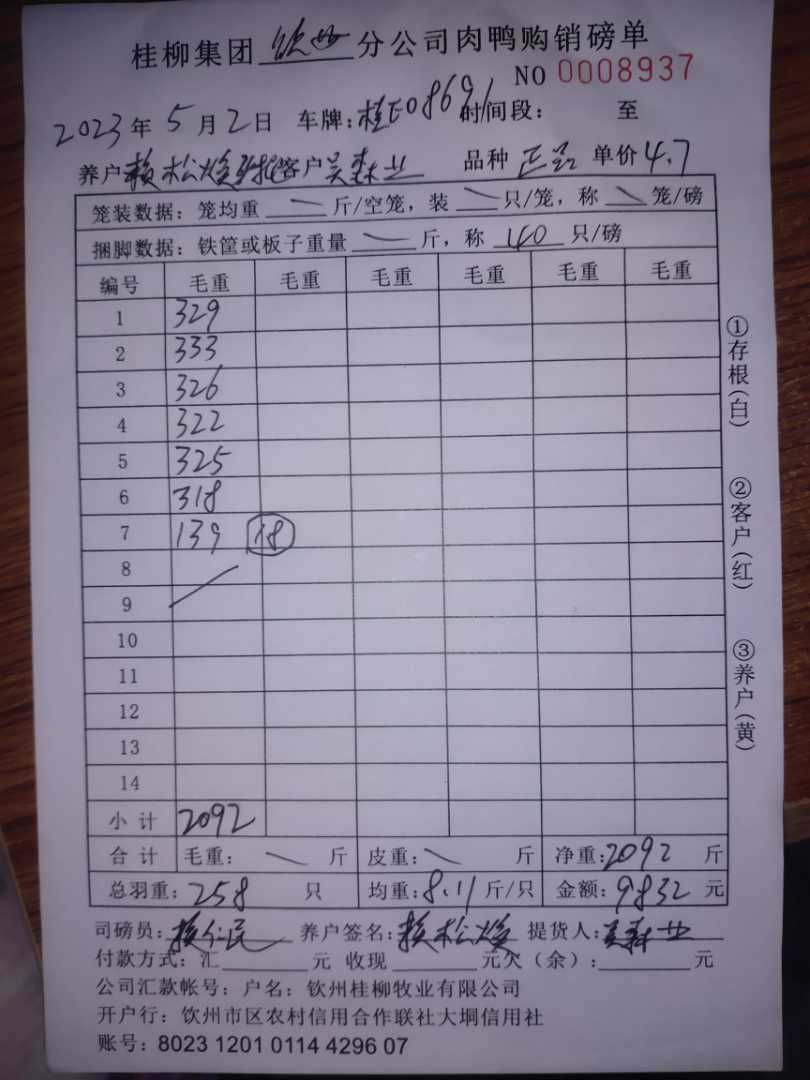 桂柳集团 钦州 分公司肉鸭购销磅单
NO 0008937
2023年 5月 2日 车牌：桂E08691 时间段： 至
养户 赖松焕 客户 吴森业 品种 单价 4.7
笼装数据：笼均重 斤/空笼，装 只/笼，称 笼/磅
捆脚数据：铁筐或板子重量 斤，称 40 只/磅
编号 毛重 毛重 毛重 毛重 毛重 毛重
1 329
2 333
3 326
4 322
5 325
6 318
7 139 18
8
9
10
11
12
13
14
小计 2092
合计 毛重： 斤 皮重： 斤 净重：2092 斤
总羽重：258 只 均重：8.11 斤/只 金额：9832 元
司磅员： 养户签名：赖松焕 提货人：吴森业
付款方式：汇 元 收现 元欠（余）： 元
公司汇款帐号：户名：钦州桂柳牧业有限公司
开户行：钦州市区农村信用合作联社大垌信用社
账号：8023 1201 0114 4296 07
①存根（白）
②客户（红）
③养户（黄）